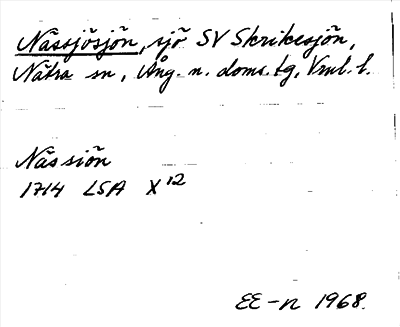 Nässjösjön, sjö SV Skrikesjön,
Nätra sn, Ång. n. doms. tg, Vnl. l.
Nässiön
1714 LSA X12
EE-n 1968.